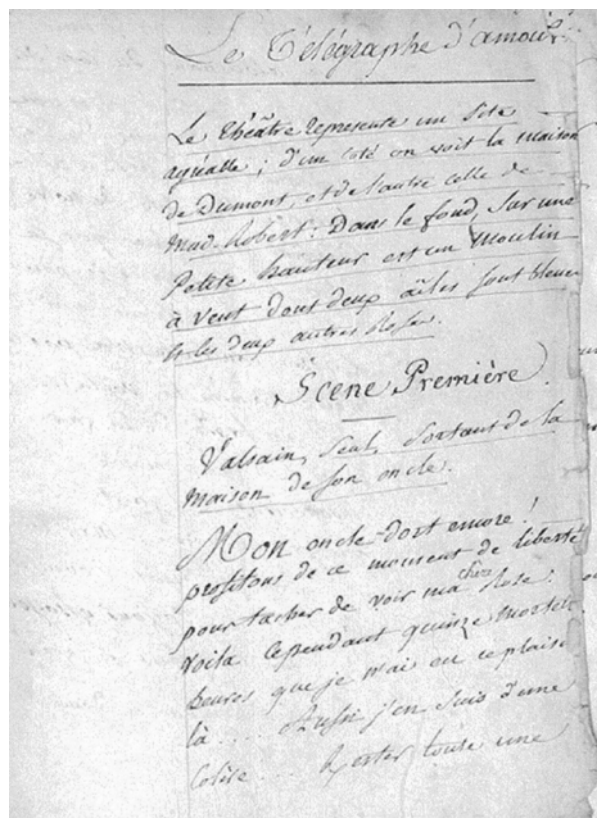 Le Télégraphe d'amour.
Le théâtre represente un site
agréable ; d'un coté on voit la maison
de Dumont, et de l'autre celle de
Mad. Robert : Dans le fond, sur une
petite hauteur est un Moulin
à vent dont deux aîles sont bleues
& les deux autres Roses.
Scene Première.
Valsain, seul, sortant de la
Maison de son oncle.
Mon oncle dort encore !
profitons de ce moment de liberté
pour tacher de voir ma chère Rose.
Voila cependant quinze mortelles
heures que je n'ai eu ce plaisir
là .... Aussi j'en suis d'une
Colère ... Rester toute une